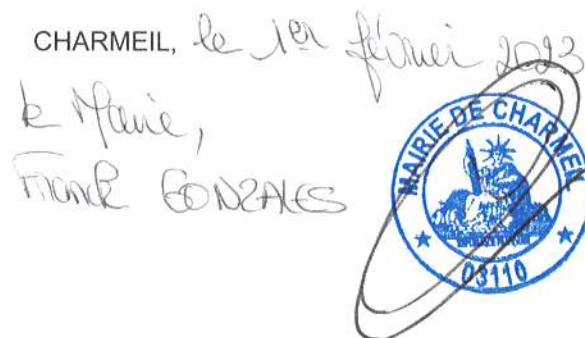 CHARMEIL, le 1er février 2023
le Maire,
Franck GONZALES
MAIRIE DE CHARMEIL
03110